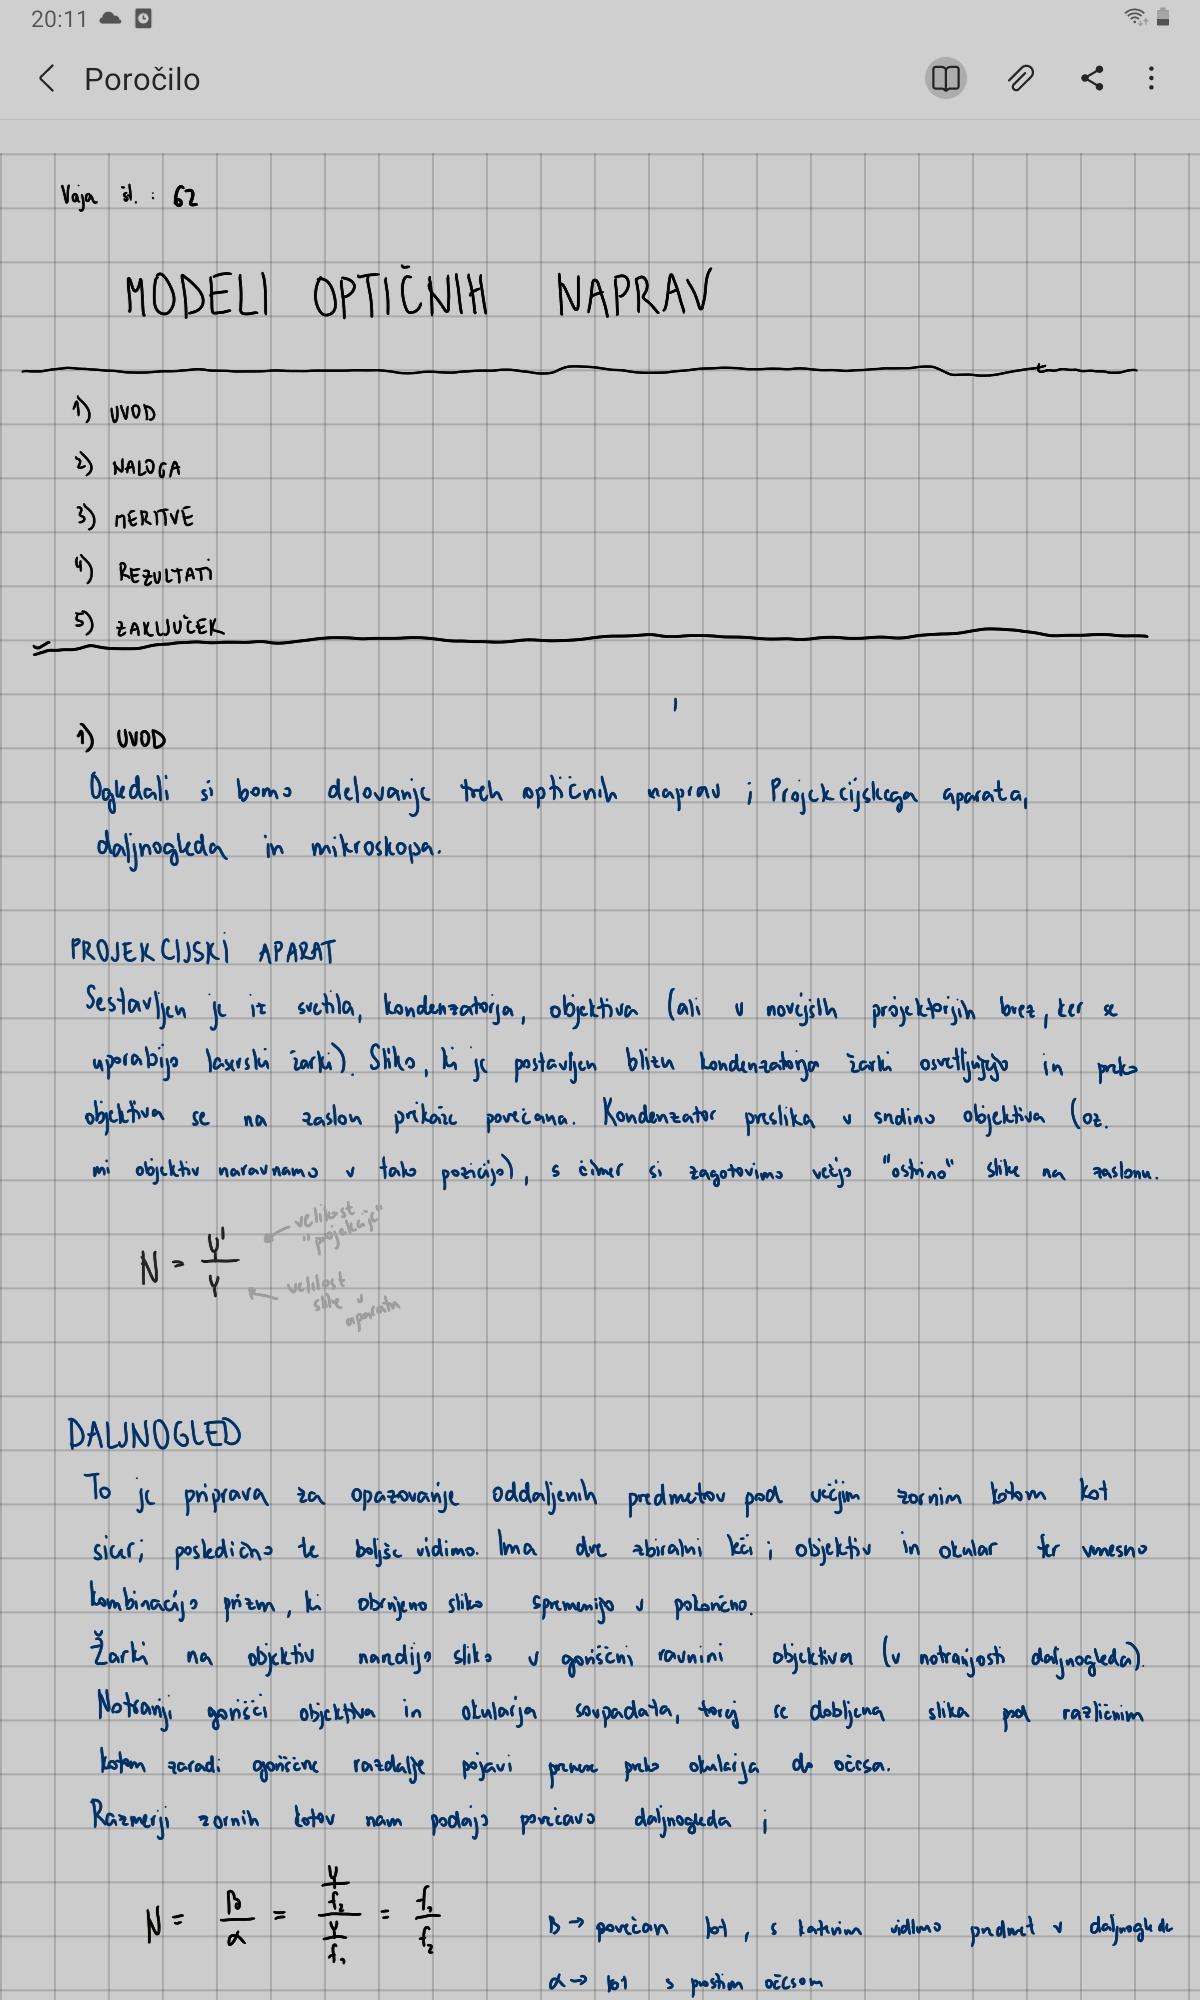 20:11
Poročilo
Vaja št. : 62
MODELI OPTIČNIH NAPRAV
1) UVOD
2) NALOGA
3) MERITVE
4) REZULTATI
5) ZAKLJUČEK
1) UVOD
Ogledali si bomo delovanje treh optičnih naprav ; Projekcijskega aparata,
daljnogleda in mikroskopa.
PROJEKCIJSKI APARAT
Sestavljen je iz svetila, kondenzatorja, objektiva (ali v novejših projektorjih brez, ker se
uporabijo laserski žarki). Sliko, ki je postavljen blizu kondenzatorja žarki osvetljujejo in preko
objektiva se na zaslon prikaže povečana. Kondenzator preslika v sredino objektiva (oz.
mi objektiv naravnamo v tako pozicijo), s čimer si zagotovimo večjo "ostrino" slike na zaslonu.
N = y'/y
velikost "projekcije"
velikost slike v aparatu
DALJNOGLED
To je priprava za opazovanje oddaljenih predmetov pod večjim zornim kotom kot
sicer; posledično te boljše vidimo. Ima dve zbiralni leči ; objektiv in okular ter vmesno
kombinacijo prizm, ki obrnjeno sliko spremenijo v pokončno.
Žarki na objektiv naredijo sliko v goriščni ravnini objektiva (v notranjosti daljnogleda).
Notranji gorišči objektiva in okularja sovpadata, torej se dobljena slika pod različnim
kotom zaradi goriščne razdalje pojavi preko okularja do očesa.
Razmerji zornih kotov nam podajo povečavo daljnogleda ;
N = β/α = (y/f₂)/(y/f₁) = f₁/f₂
β → povečan kot, s katerim vidimo predmet v daljnogledu
α → kot s prostim očesom